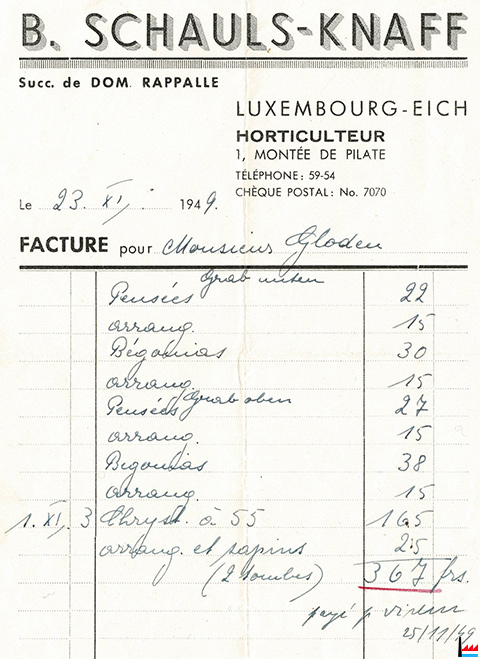 B. SCHAULS-KNAFF
Succ. de DOM. RAPPALLE
LUXEMBOURG-EICH
HORTICULTEUR
1, MONTÉE DE PILATE
TÉLÉPHONE: 59-54
CHÈQUE POSTAL: No. 7070
Le 23. XI. 1949.
FACTURE pour Monsieur Gloden
Grab unten
Pensées 22
arrang. 15
Bégonias 30
arrang. 15
Pensées Grab oben 27
arrang. 15
Begonias 38
arrang. 15
1. XI, 3 Chryst. à 55 165
arrang et sapins 25
(2 tombes) 367 frs.
payé p virem
25/11/49